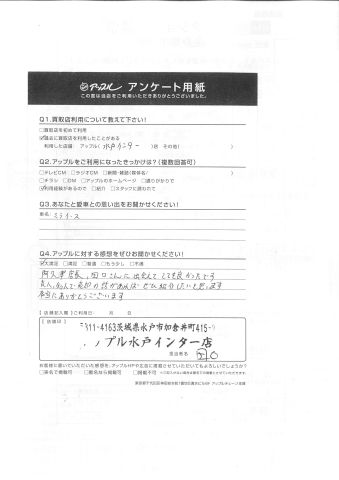 アップル アンケート用紙
この度は当店をご利用いただきありがとうございました。
Q1.買取店利用について教えて下さい!
□買取店を初めて利用
☑過去に買取店を利用したことがある
利用した店舗 アップル(水戸インター)店 その他( )
Q2.アップルをご利用になったきっかけは?(複数回答可)
□テレビCM □ラジオCM □新聞・雑誌(媒体名: )
□チラシ □DM □アップルのホームページ □通りがかりで
☑利用経験があるので □紹介 □スタッフに誘われて
Q3.あなたと愛車との思い出をお聞かせください!
車名: ミライース
Q4.アップルに対する感想をぜひお聞かせください!
☑大満足 □満足 □普通 □もう少し □不満
阿久津店長、田口さんに出会えてとても良かったです
友人、知人で売却の話があれば ぜひ紹介したいと思います
本当にありがとうございます
【店舗記入欄】ご利用日: 月 日
【店舗印】
311-4163茨城県水戸市加倉井町415-
プル水戸インター店
担当者名
お客様に書いていただいた感想を、アップルHPや北店に掲載させていただいてもよろしいでしょうか?
□実名で掲載可 □匿名なら掲載可 □掲載不可